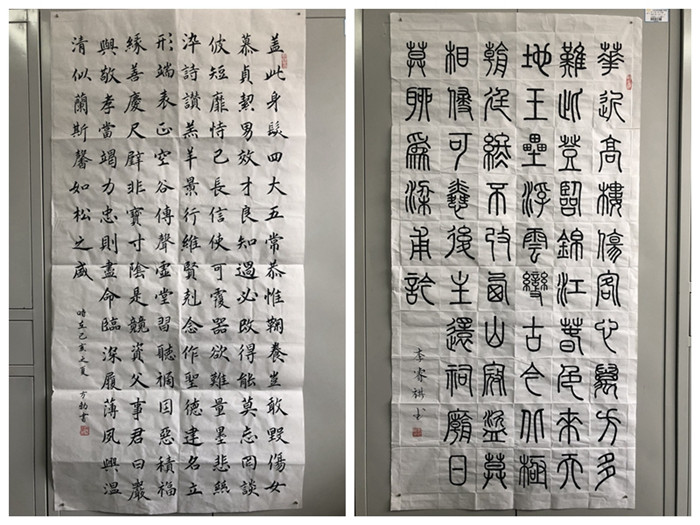 盖此身髮四大五常恭惟鞠養豈敢毀傷女
慕貞絜男效才良知過必改得能莫忘罔談
彼短靡恃己長信使可覆器欲難量墨悲絲
染詩讚羔羊景行維賢剋念作聖德建名立
形端表正空谷傳聲虛堂習聽禍因惡積福
緣善慶尺璧非寶寸陰是競資父事君曰嚴
與敬孝當竭力忠則盡命臨深履薄夙興溫
清似蘭斯馨如松之盛
時在己亥之夏
書
華近高樓傷客心萬方多
難此登臨錦江萅色來天
地玉壘浮雲變古今北極
朝廷終不改西山寇盜莫
相侵可憐後主還祠廟日
莫聊為梁甫
李睿祺书